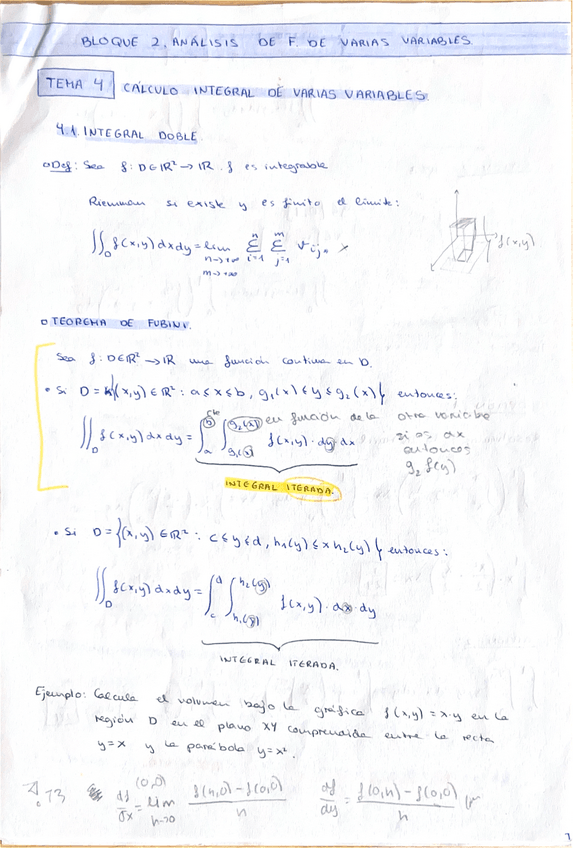 BLOQUE 2. ANÁLISIS DE F. DE VARIAS VARIABLES
TEMA 4 CÁLCULO INTEGRAL DE VARIAS VARIABLES
4.1. INTEGRAL DOBLE
Def: Sea f: D∈ℝ² → ℝ. f es integrable
Riemman si existe y es finito el límite:
∬_D f(x,y) dxdy = lim_{n→+∞, m→+∞} Σ_{i=1}^{n} Σ_{j=1}^{m} v_{ij}
f(x,y)
TEOREMA DE FUBINI.
Sea f: D∈ℝ² → ℝ una función continua en D.
• Si D = {(x,y) ∈ ℝ² : a ≤ x ≤ b, g₁(x) ≤ y ≤ g₂(x)} entonces:
∬_D f(x,y) dx dy = ∫_a^b ∫_{g₁(x)}^{g₂(x)} f(x,y) · dy dx
cte
en función de la otra variable
si es dx
entonces
g₂ f(y)
INTEGRAL ITERADA.
• Si D = {(x,y) ∈ ℝ² : c ≤ y ≤ d, h₁(y) ≤ x h₂(y)} entonces:
∬_D f(x,y) dxdy = ∫_c^d ∫_{h₁(y)}^{h₂(y)} f(x,y) · dx · dy
INTEGRAL ITERADA.
Ejemplo: Calcula el volumen bajo la gráfica f(x,y) = x·y en la
región D en el plano XY comprendida entre la recta
y=x y la parábola y=x².
(0,0)
df/dx = lim_{h→0} f(h,0) − f(0,0) / h df/dy = f(0,h) − f(0,0) / h